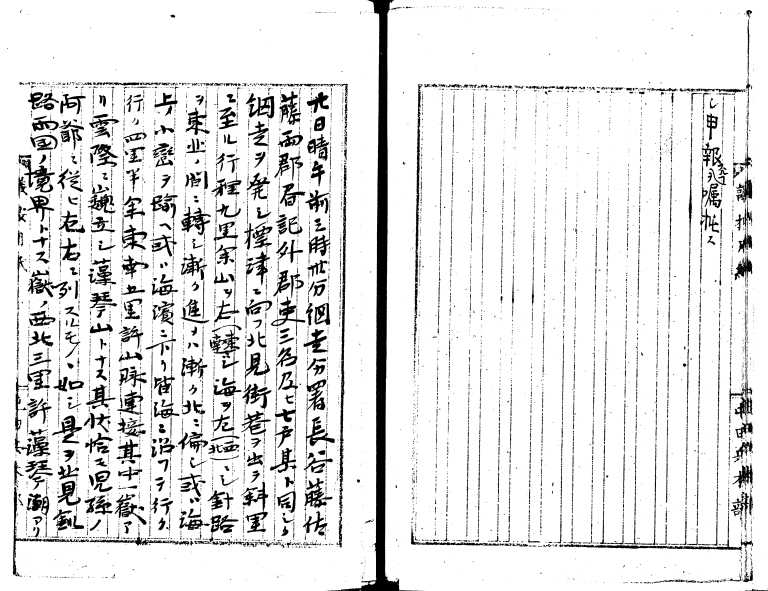 シ申報ヲ嘱托ス
廿日晴午前三時廿分網走分署長谷藤佐
藤両郡書記外郡吏三名及ヒ七戸某ト同シク
網走ヲ発シ標津ニ向フ北見街巷ヲ出テ斜里
ニ至ル行程九里余山ヲ右（東）ニシ海ヲ左（西北）ニシ針路
ヲ東北ノ間ニ転シ漸ク進メハ漸ク北ニ偏シ或ハ海
上ノ小巒ヲ踰ヘ或ハ海濱ニ下リ皆海ニ沿フテ行ク
行ク四里半余東南五里許山脈連接其中一嶽ア
リ雲際ニ巍立シ藻琴山トナス其状恰モ児孫ノ
阿爺ニ従ヒ左右ニ列スルモノヽ如シ是ヲ北見釧
路両国ノ境界トナス嶽ノ西北三里許藻琴湖アリ